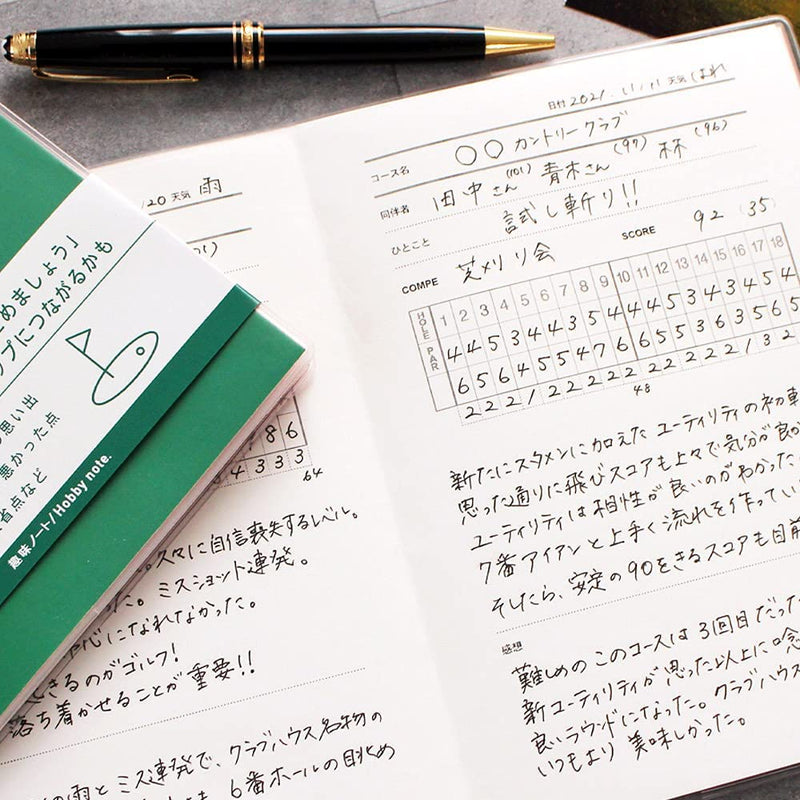 日付 2021. 11. 11 天気 はれ
コース名 ○○ カントリークラブ
同伴者 田中さん(101) 青木さん(97) 林(96)
ひとこと 試し斬り!!
COMPE 芝刈り会 SCORE 92 (35)
HOLE 1 2 3 4 5 6 7 8 9 10 11 12 13 14 15 16 17 18
PAR 4 4 5 3 4 4 3 5 4 4 4 5 3 4 3 4 5 4
6 5 6 4 5 5 4 7 6 6 5 5 3 6 3 5 6 5
2 2 2 1 2 2 2 2 2 2 2 2 2 2 1 3 2
48
新たにスタメンに加えた ユーティリティの初
思った通りに飛びスコアも上々で気分が良
ユーティリティは相性が良いのがわかった
7番アイアンと上手く流れを作ってい
そしたら、安定の90をきるスコアも目前
感想
難しめの このコースは 3回目だった
新ユーティリティが 思った以上に
良いラウンドになった。クラブハウス
いつもより 美味しかった。
20 天気 雨
8 6
4 3 3 3
64
久々に自信喪失するレベル。
た。ミスショット連発。
心になれなかった。
きるのがゴルフ!
落ち着かせることが 重要!!
の雨と ミス連発で、クラブハウス名物の
6番ホールの眺め
めましょう」
プにつながるかも
思い出
悪かった点
省点など
趣味ノート/Hobby note.